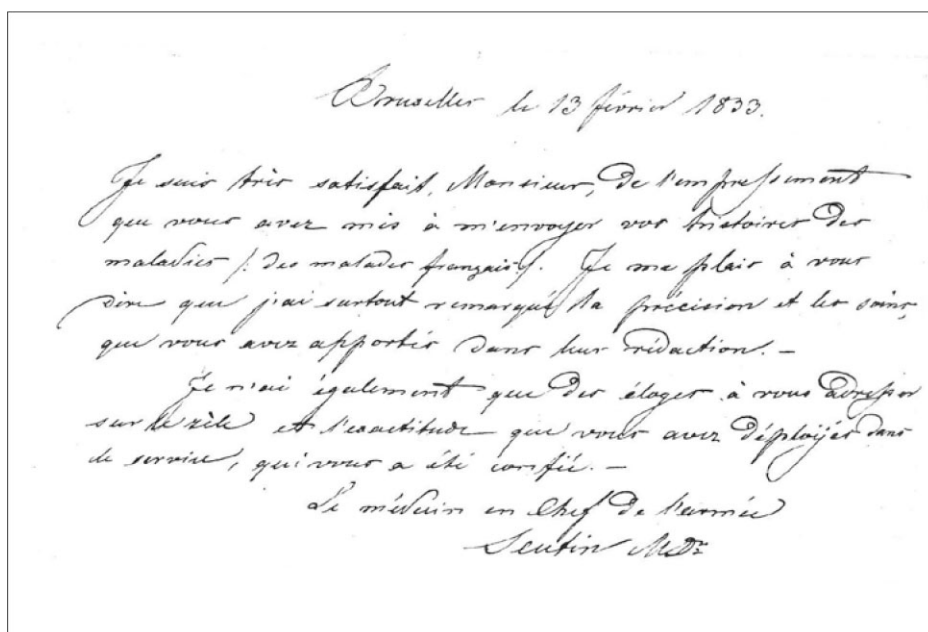 Bruxelles le 13 février 1833.
Je suis très satisfait, Monsieur, de l'empressement
que vous avez mis à m'envoyer vos histoires des
maladies /: des malades français/. Je me plais à vous
dire que j'ai surtout remarqué la précision et les soins,
que vous avez apportés dans leur rédaction. —
Je n'ai également que des éloges à vous adresser
sur le zèle et l'exactitude que vous avez déployés dans
le service, qui vous a été confié. —
Le médecin en Chef de l'armée
Seutin M Dr